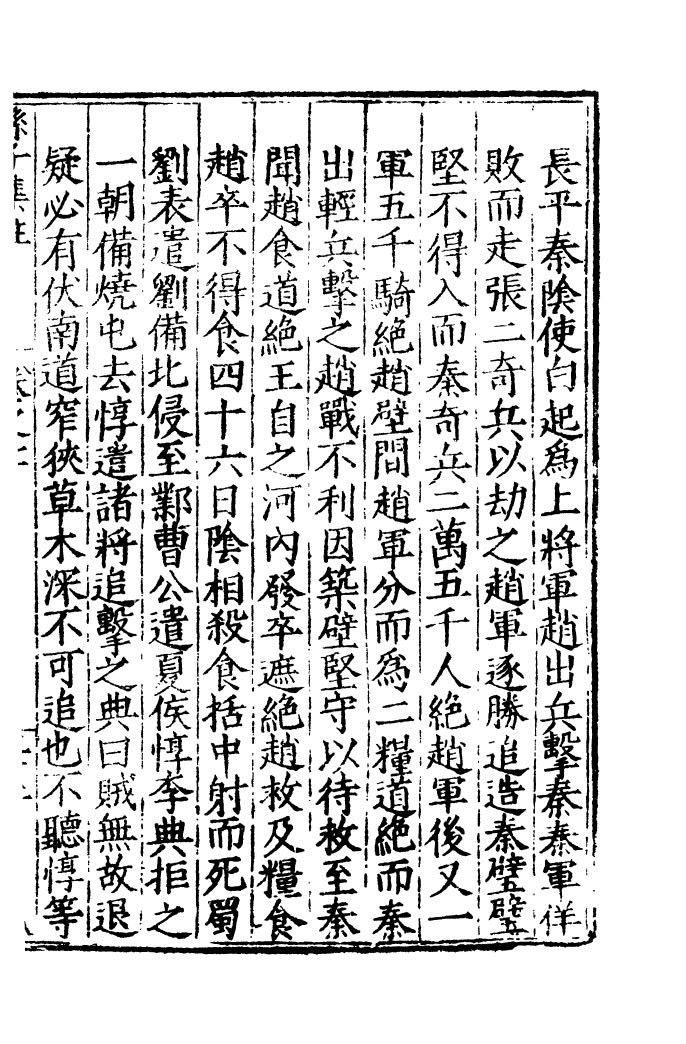 長平秦陰使白起爲上將軍趙出兵擊秦秦軍佯
敗而走張二奇兵以劫之趙軍逐勝追造秦壁壁
堅不得入而秦奇兵二萬五千人絶趙軍後又一
軍五千騎絶趙壁間趙軍分而爲二糧道絶而秦
出輕兵擊之趙戰不利因築壁堅守以待救至秦
聞趙食道絶王自之河内發卒遮絶趙救及糧食
趙卒不得食四十六日陰相殺食括中射而死蜀
劉表遣劉備北侵至鄴曹公遣夏侯惇李典拒之
一朝備燒屯去惇遣諸將追擊之典曰賊無故退
疑必有伏南道窄狹草木深不可追也不聽惇等
孫子集註